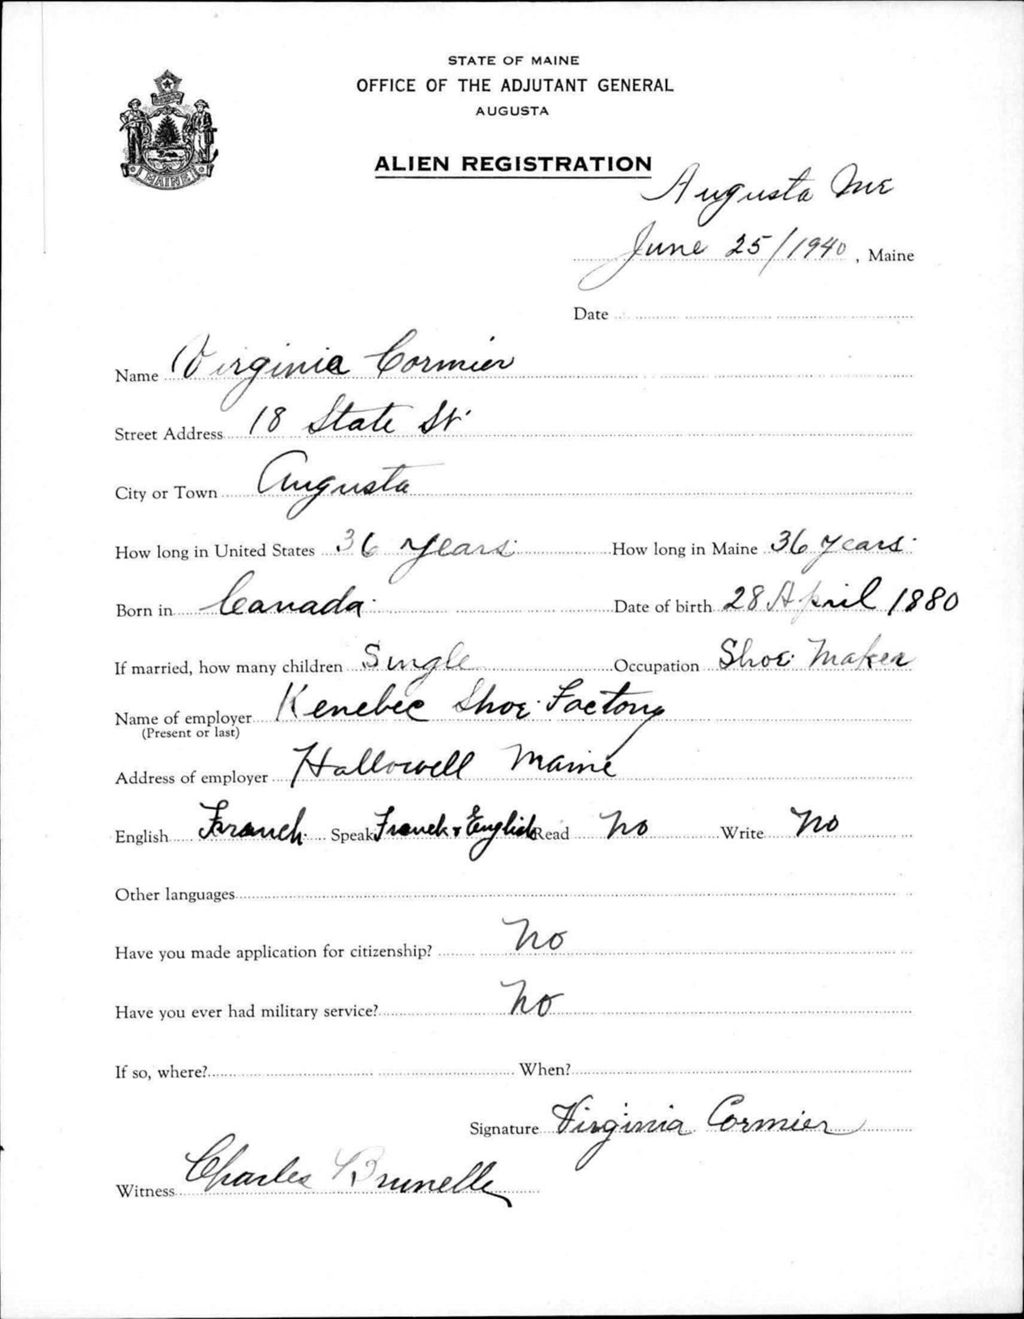 STATE OF MAINE
OFFICE OF THE ADJUTANT GENERAL
AUGUSTA
ALIEN REGISTRATION
MAINE
Augusta Me
June 25/1940, Maine
Date
Name Virginia Cormier
Street Address 18 State St
City or Town Augusta
How long in United States 36 years. How long in Maine 36 years.
Born in Canada. Date of birth 28 April 1880
If married, how many children Single Occupation Shoe Maker
Name of employer Kenebec Shoe Factory
(Present or last)
Address of employer Hallowell Maine
English French. Speak French & English Read No Write No
Other languages
Have you made application for citizenship? No
Have you ever had military service? No
If so, where? When?
Signature Virginia Cormier
Witness Charles Brunelle